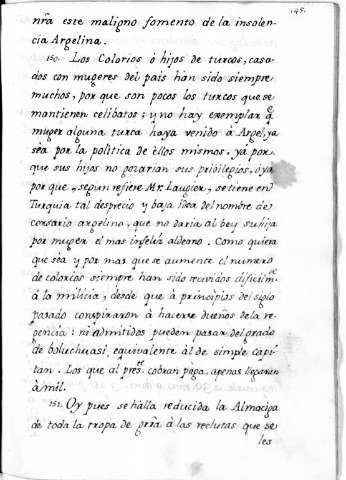 145.
nrâ este maligno fomento de la insolen-
cia Argelina.
150. Los Colorios ò hijos de turcos, casa-
dos con mugeres del pais han sido siempre
muchos, por que son pocos los turcos que se
mantienen celibatos; y no hay exemplar q.e
muger alguna turca haya venido à Argel, ya
sèa por la politica de èllos mismos, yá por
que sus hijos no gozarian sus privilegios, ò ya
por que, segun refiere Mr. Laugier, se tiene en
Turquia tal desprecio y baja idea del nombre de
corsario argelino, que no daria al bey su hija
por muger el mas infeliz aldeano. Como quiera
que sèa y por mas que se aumente el numero
de colorios siempre han sido recividos dificilm.te
à la milicia, desde que à principios del siglo
pasado conspiraron à hacerse dueños de la re-
gencia: ni admitidos pueden pasar del grado
de boluchuasi, equivalente al de simple capi-
tan. Los que al pres.te cobran paga, apenas llegaran
à mil.
151. Oy pues se hàlla reducida la Almaciga
de toda la tropa de grrâ à las reclutas que se
les